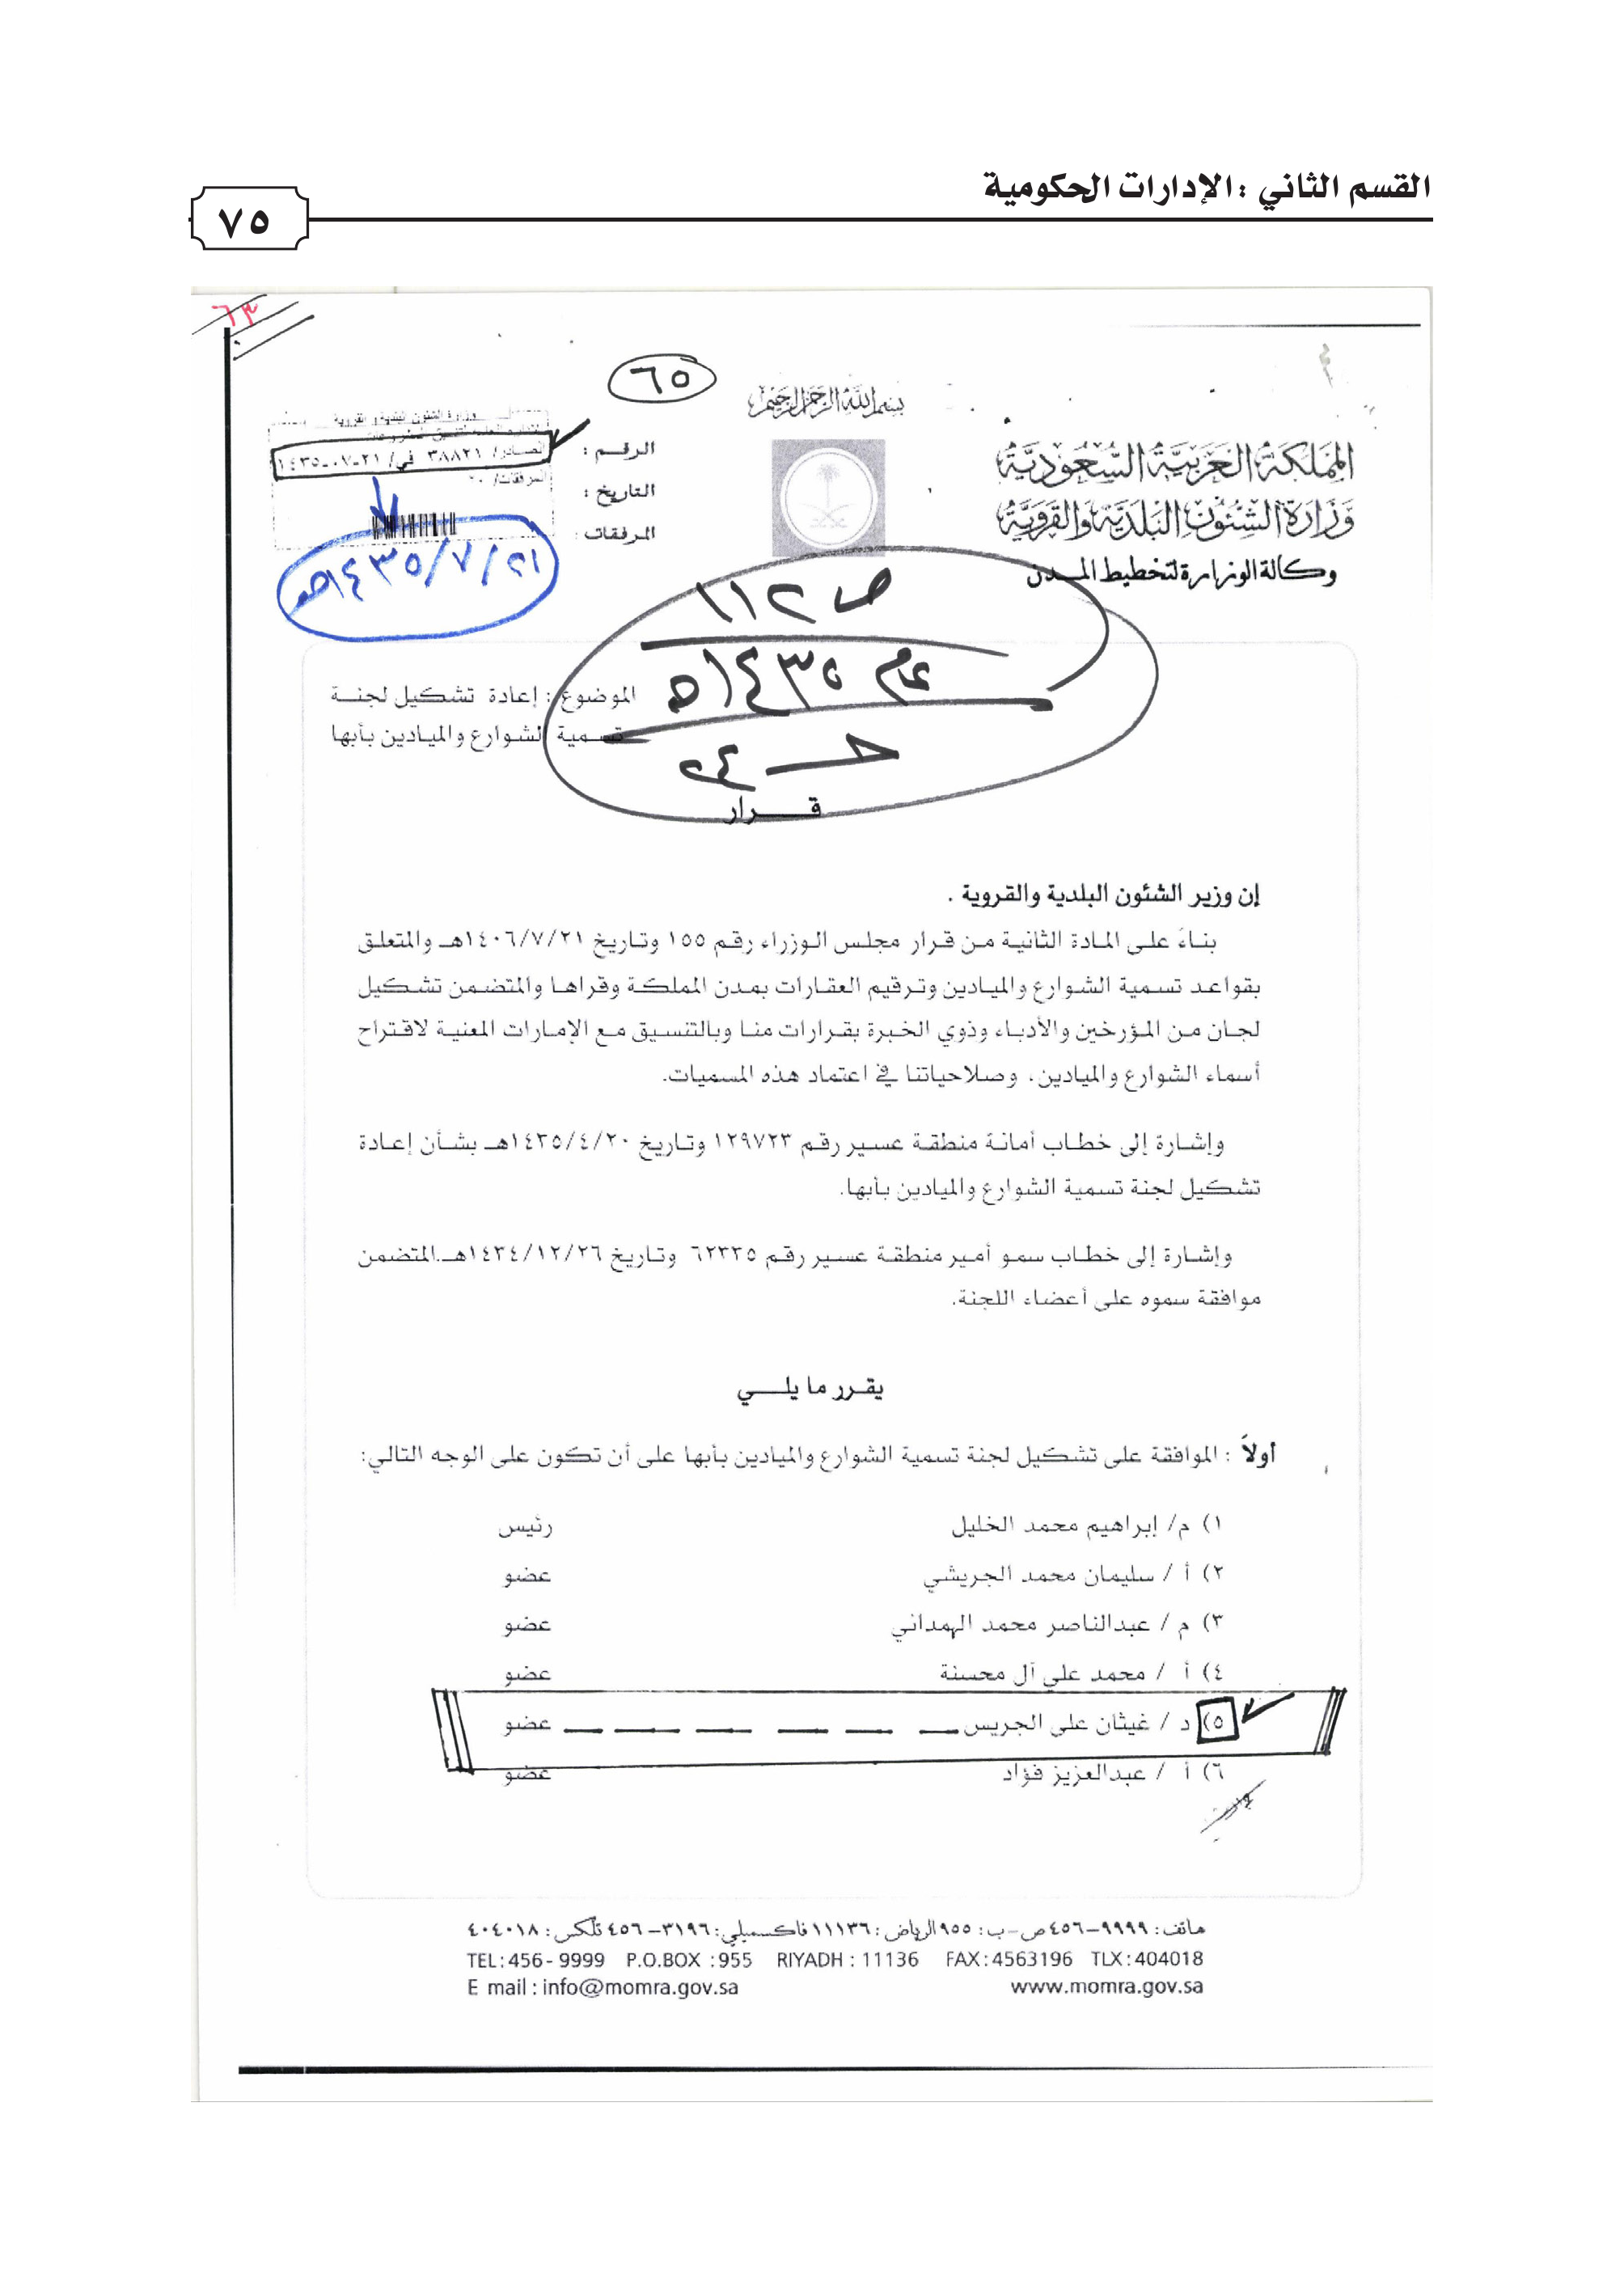 القسم الثاني : الإدارات الحكومية
٧٥
٦٣
٦٥
بسم الله الرحمن الرحيم
المملكة العربية السعودية
وزارة الشئون البلدية والقروية
وكالة الوزارة لتخطيط المدن
وزارة الشئون البلدية والقروية
الرقم :
الصادر/ ٣٨٨٢١ في/ ٢١-٠٧-١٤٣٥
التاريخ :
المرفقات/ ٢٠
المرفقات :
٢١/٧/١٤٣٥هـ
ص ١١٢
عام ١٤٣٥هـ
حـ ٢٤
الموضوع : إعادة تشكيل لجنة
تسمية الشوارع والميادين بأبها
قـــرار
إن وزير الشئون البلدية والقروية .
بناءً على المادة الثانية من قرار مجلس الوزراء رقم ١٥٥ وتاريخ ١٤٠٦/٧/٢١هـ والمتعلق
بقواعد تسمية الشوارع والميادين وترقيم العقارات بمدن المملكة وقراها والمتضمن تشكيل
لجان من المؤرخين والأدباء وذوي الخبرة بقرارات منا وبالتنسيق مع الإمارات المعنية لاقتراح
أسماء الشوارع والميادين، وصلاحياتنا في اعتماد هذه المسميات.
وإشارة إلى خطاب أمانة منطقة عسير رقم ١٢٩٧٢٣ وتاريخ ١٤٣٥/٤/٢٠هـ بشأن إعادة
تشكيل لجنة تسمية الشوارع والميادين بأبها.
وإشارة إلى خطاب سمو أمير منطقة عسير رقم ٦٢٣٣٥ وتاريخ ١٤٣٤/١٢/٢٦هـ المتضمن
موافقة سموه على أعضاء اللجنة.
يقرر ما يلـــي
أولاً : الموافقة على تشكيل لجنة تسمية الشوارع والميادين بأبها على أن تكون على الوجه التالي:
١) م/ إبراهيم محمد الخليل رئيس
٢) أ / سليمان محمد الجريشي عضو
٣) م / عبدالناصر محمد الهمداني عضو
٤) أ / محمد علي آل محسنة عضو
٥) د / غيثان على الجريس عضو
٦) أ / عبدالعزيز فؤاد عضو
هاتف : ٩٩٩٩-٤٥٦ ص-ب : ٩٥٥ الرياض : ١١١٣٦ فاكسميلي : ٣١٩٦-٤٥٦ تلكس : ٤٠٤٠١٨
TEL : 456 - 9999 P.O.BOX : 955 RIYADH : 11136 FAX : 4563196 TLX : 404018
E mail : info@momra.gov.sa www.momra.gov.sa